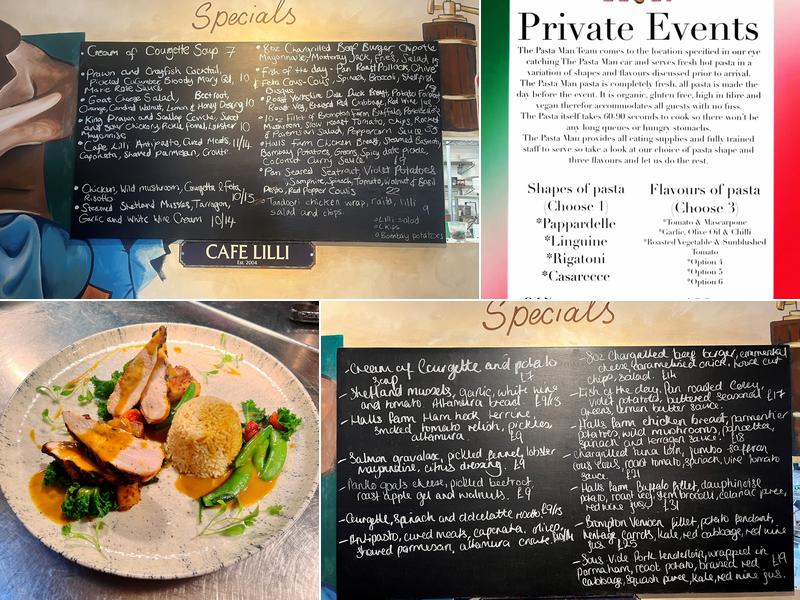 Specials
- Cream of Courgette Soup 7
- Prawn and Crayfish Cocktail,
Pickled Cucumber, Bloody Mary Gel, 10
Marie Rose Sauce
- Goat Cheese Salad, Beetroot,
Orange, Candied Walnuts, Lemon & Honey Dressing 10
- King Prawn and Scallop Ceviche, Sweet
and Sour Chicory, Pickle Fennel, Lobster 10
Mayonnaise
- Cafe Lilli Antipasto, Cured Meats, 11/14
Caponata, Shaved parmesan, Croute
- Chicken, Wild mushroom, Courgette & feta
Risotto 10/15
- Steamed Shetland Mussles, Tarragon,
Garlic and White Wine Cream 10/14
- 8oz Chargrilled Beef Burger, Chipotle
Mayonnaise, Monterey Jack, Fries, Salad 15
- Fish of the day - Pan Roast Pollock, Chive
Feta Cous-Cous, Spinach, Broccoli, Shellfish
Bisque
- Roast Yorkshire Duck Breast, Potato Fondant
Roast Veg, Braised Red Cabbage, Red Wine Jus
- 10oz Fillet of Brompton Farm Buffalo,
Mushroom, Slow Roast Tomato, Chips, Rocket
& Parmesan Salad, Peppercorn Sauce 35
- Halls Farm Chicken Breast, Steamed
Bombay Potatoes, Greens, Spicy date Pickle,
Coconut Curry Sauce 19
- Pan Seared Seatrout, Violet Potatoes
Samphire, Spinach, Tomato, Walnut & Basil
Pesto, Red Pepper Coulis 22
- Tandoori chicken wrap, raita, lilli
salad and chips 9
o Lilli salad
o Chips
o Bombay potatoes
CAFE LILLI
Est. 2004
Private Events
The Pasta Man Team comes to the location specified in our eye
catching The Pasta Man car and serves fresh hot pasta in a
variation of shapes and flavours discussed prior to arrival.
The Pasta Man pasta is completely fresh, all pasta is made the
day before event. It is organic, gluten free, high in fibre and
vegan therefor accommodates all guests with no fuss.
The Pasta itself takes 60-90 seconds to cook so there won't be
any long queues or hungry stomachs.
The Pasta Man provides all eating supplies and fully trained
staff to serve so take a look at our choice of pasta shape and
three flavours and let us do the rest.
Shapes of pasta
(Choose 1)
*Pappardelle
*Linguine
*Rigatoni
*Casarecce
Flavours of pasta
(Choose 3)
*Tomato & Mascarpone
*Garlic, Olive Oil & Chilli
*Roasted Vegetable & Sunblushed
Tomato
*Option 4
*Option 5
*Option 6
Specials
- Cream of Courgette and potato
soup £7
- Shetland mussels, garlic, white wine
and tomato Altamura bread £9/15
- Halls farm Ham hock terrine,
smoked tomato relish, pickles,
altamura £9
- Salmon gravalax, pickled fennel, lobster
mayonnaise, citrus dressing £9
- Panko goats cheese, pickled beetroot,
roast apple gel and walnuts. £9
- Courgette, Spinach and dolcelatte risotto £9/15
- Antipasto, cured meats, caponata, olives,
shaved parmesan, altamura croute. £10/14
- 8oz Chargrilled beef burger, emmental
cheese, caramelised onion, house cut
chips, salad. £14
- Fish of the day, Pan roasted Coley,
violet potatoes, buttered seasonal
greens, lemon butter sauce. £17
- Halls farm chicken breast, parmentier
potatoes, wild mushrooms, pancetta,
spinach and tarragon sauce. £18
- Chargrilled tuna loin, jumbo saffron
cous cous, roast tomato, spinach, vine tomato
sauce. £21
- Halls farm Buffalo fillet, dauphinoise
potato, roast veg, stem broccoli, celeriac puree,
red wine jus. £31
- Brompton Venison fillet, potato fondant,
heritage carrots, kale, red cabbage, red wine
jus £25
- Sous Vide Pork tenderloin, wrapped in
Parmaham, roast potato, braised red £19
cabbage, squash puree, kale, red wine jus.